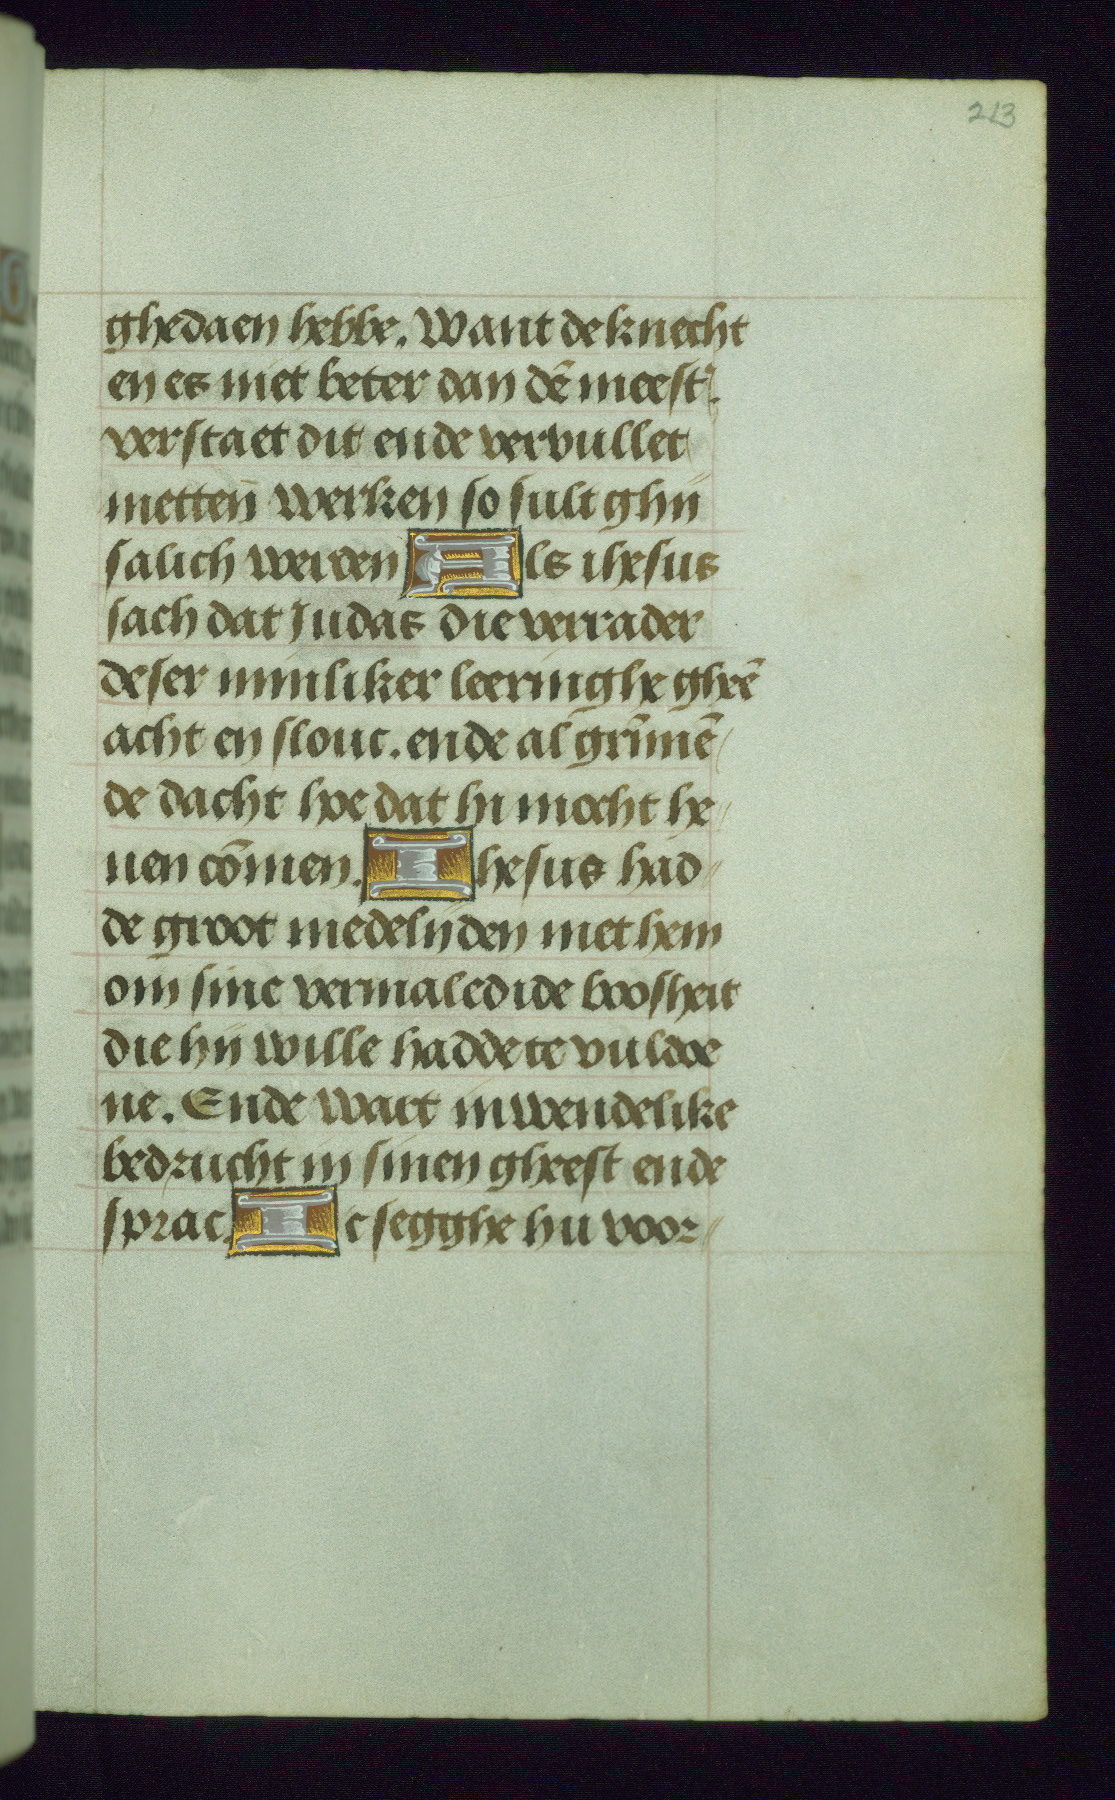 213
ghedaen hebbe. Want de knecht
en es niet beter dan dē meest͛.
verstaet dit ende vervullet
metten̄ werken so sult ghij
salich werden Als ihesus
sach dat Judas die verrader
deser minliker leeringhe gheē
acht en slouc. ende al gri͞mē
de dacht hoe dat hi mocht he
uen co͞men. Ihesus had
de groot medelijden met hem
om sine vermaledide boosheit
die hij wille hadde te vuldoe
ne. Ende wart inwendelike
bedrucht in sinen gheest ende
sprac. Ic segghe hu voor